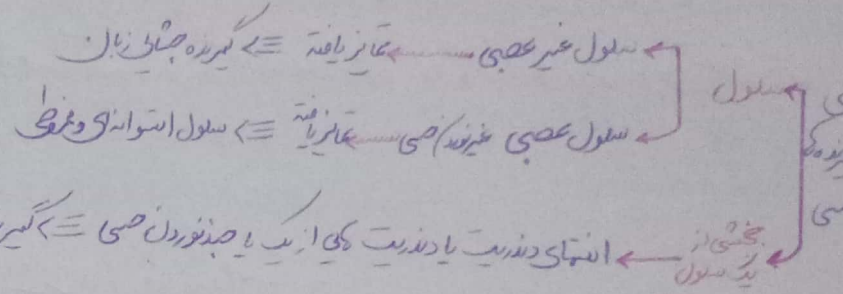 سلول غیر عصبی تمایز یافته => گیرنده چشایی زبان
سلول
سلول عصبی غیرنورون حسی تمایز یافته => سلول استوانه‌ای و مخروطی
بخشی از یک سلول
انتهای دندریت یا دندریت هایی از یک یا چند نورون حسی =>